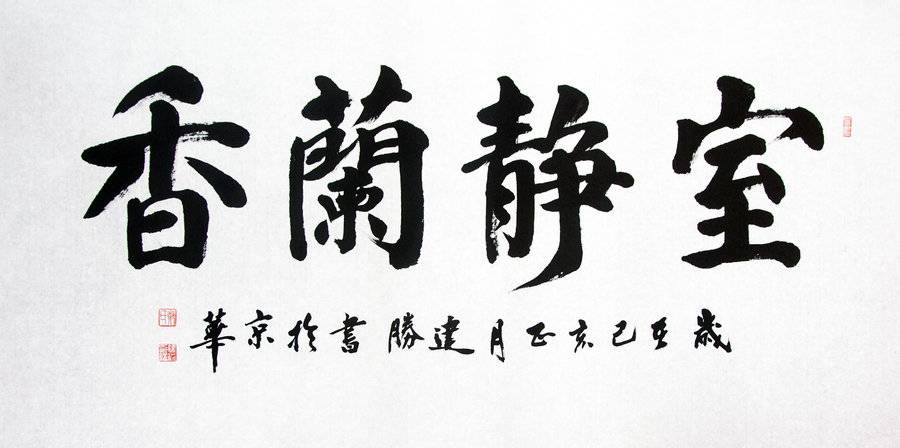 室静蘭香
歲在己亥正月建勝書於京華